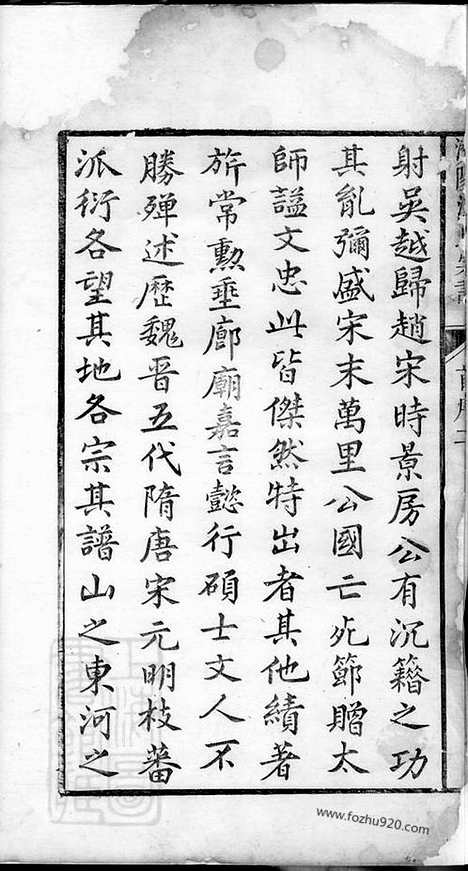 射吳越歸趙宋時景房公有沉籍之功
其胤彌盛宋末萬里公國亡死節贈太
師謚文忠此皆傑然特出者其他績著
旂常勲垂廊廟嘉言懿行碩士文人不
勝殫述歷魏晋五代隋唐宋元明枝蕃
派衍各望其地各宗其譜山之東河之
www.fozhu920.com